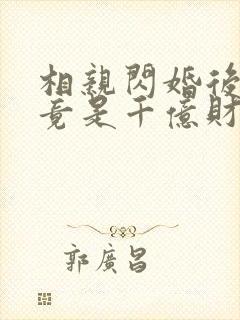 相親閃婚後
竟是千億財
郭廣昌